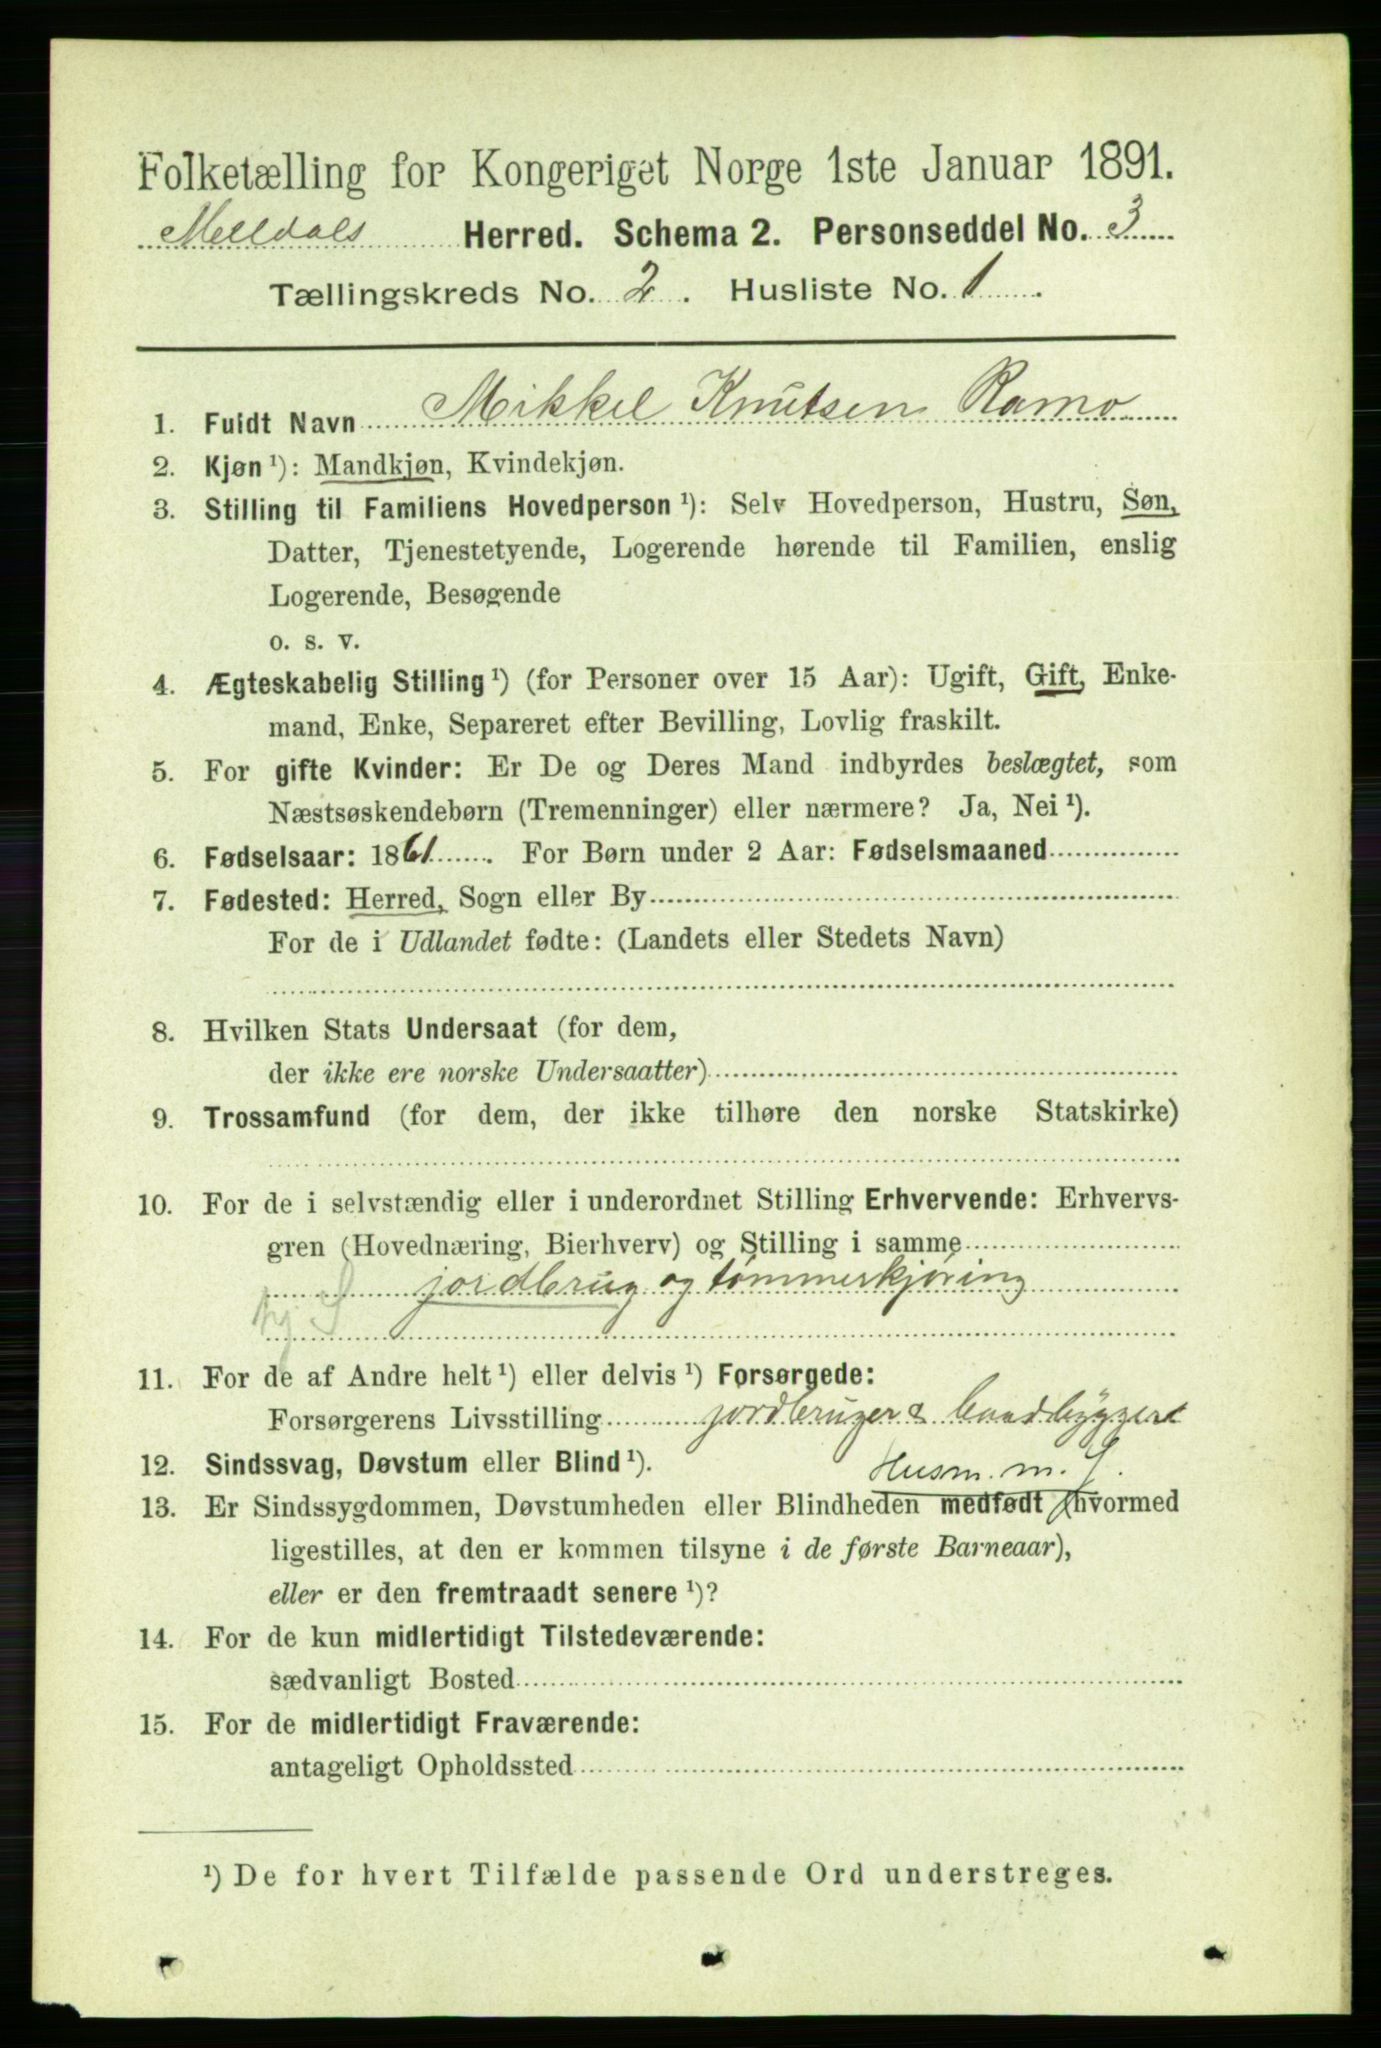 Folketælling for Kongeriget Norge 1ste Januar 1891.
Melldals Herred. Schema 2. Personseddel No. 3
Tællingskreds No. 2. Husliste No. 1.
1. Fuldt Navn Mikkel Knutsen Ramo
2. Kjøn ¹): Mandkjøn, Kvindekjøn.
3. Stilling til Familiens Hovedperson ¹): Selv Hovedperson, Hustru, Søn,
Datter, Tjenestetyende, Logerende hørende til Familien, enslig
Logerende, Besøgende
o. s. v.
4. Ægteskabelig Stilling ¹) (for Personer over 15 Aar): Ugift, Gift, Enke-
mand, Enke, Separeret efter Bevilling, Lovlig fraskilt.
5. For gifte Kvinder: Er De og Deres Mand indbyrdes beslægtet, som
Næstsøskendebørn (Tremenninger) eller nærmere? Ja, Nei ¹).
6. Fødselsaar: 1861. For Børn under 2 Aar: Fødselsmaaned
7. Fødested: Herred, Sogn eller By
For de i Udlandet fødte: (Landets eller Stedets Navn)
8. Hvilken Stats Undersaat (for dem,
der ikke ere norske Undersaatter)
9. Trossamfund (for dem, der ikke tilhøre den norske Statskirke)
10. For de i selvstændig eller i underordnet Stilling Erhvervende: Erhvervs-
gren (Hovednæring, Bierhverv) og Stilling i samme
jordbrug og tømmerkjøring
11. For de af Andre helt ¹) eller delvis ¹) Forsørgede:
Forsørgerens Livsstilling jordbruger &
12. Sindssvag, Døvstum eller Blind ¹).
Husm. m. J.
13. Er Sindssygdommen, Døvstumheden eller Blindheden medfødt (hvormed
ligestilles, at den er kommen tilsyne i de første Barneaar),
eller er den fremtraadt senere ¹)?
14. For de kun midlertidigt Tilstedeværende:
sædvanligt Bosted
15. For de midlertidigt Fraværende:
antageligt Opholdssted
¹) De for hvert Tilfælde passende Ord understreges.